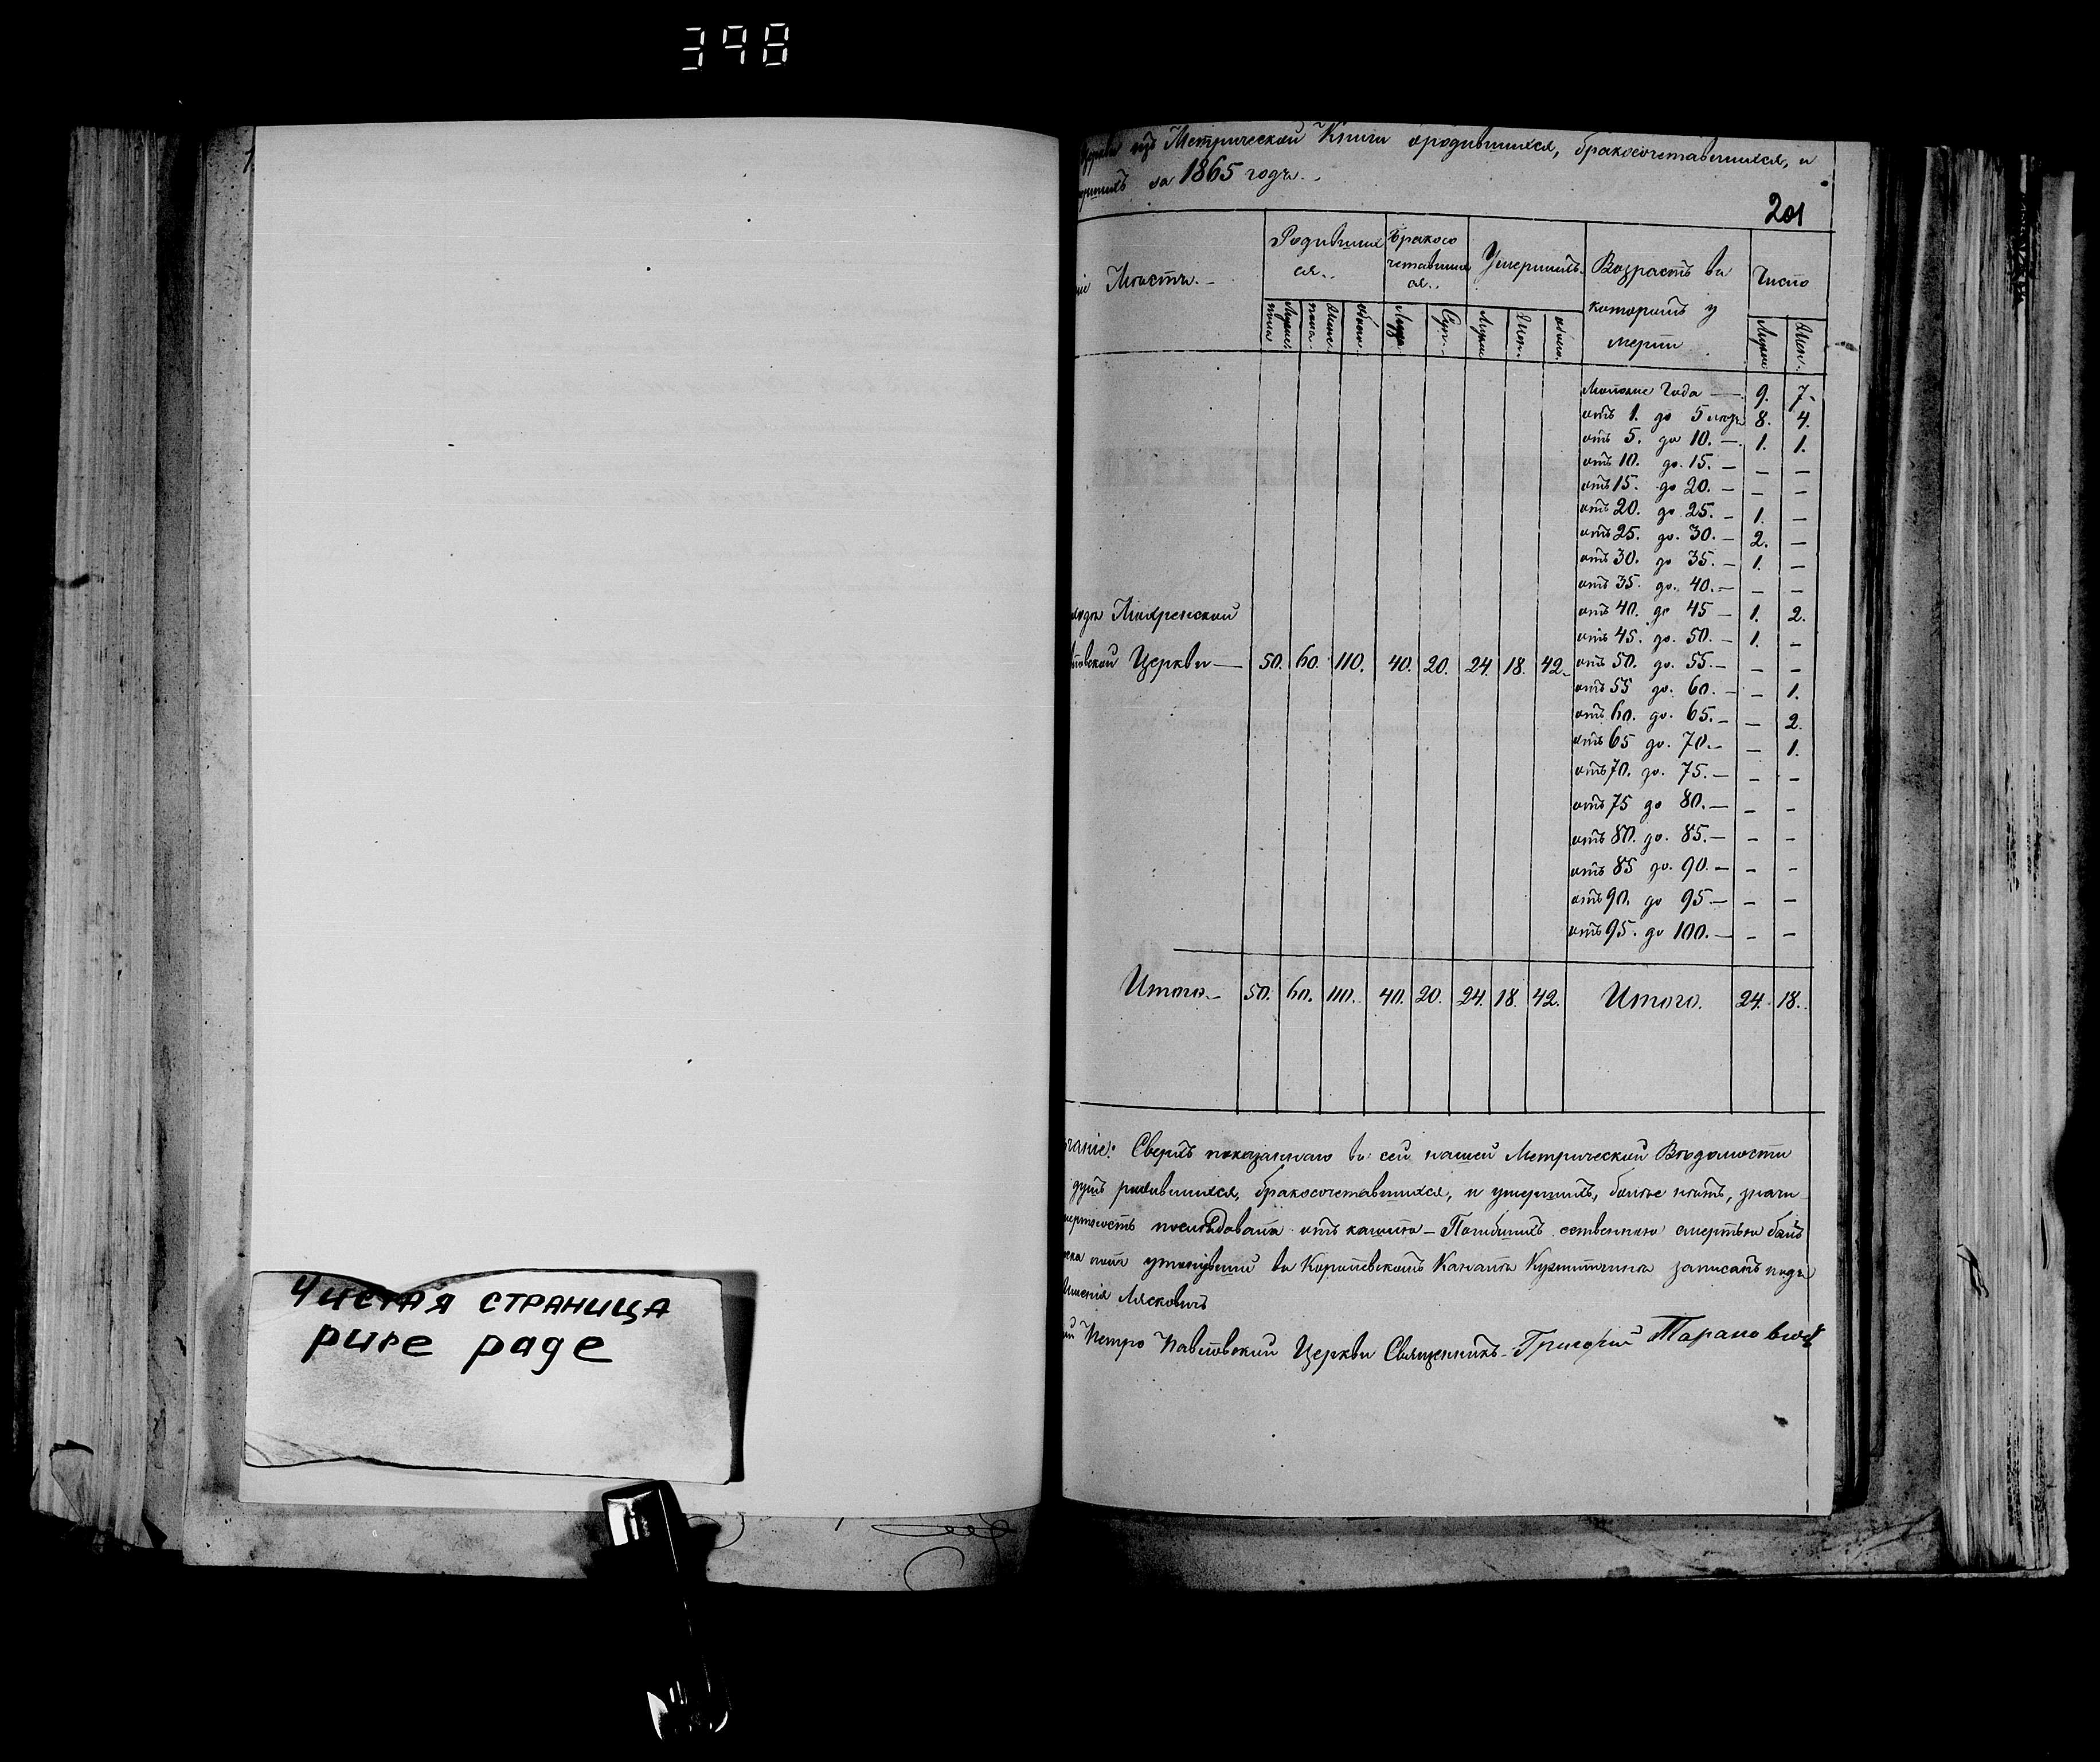 398
Чистая страница
pure page
изъ Метрической Книги о родившихся, бракосочетавшихся, и
за 1865 годъ.
201
Мѣстъ. Родившихся. Бракосочетавшихся. Умершихъ. Возрастъ въ которомъ умерли Число
Муже. пола Женс. пола. обоего. Лица Суп. Муже Жен. обоего. Муже Жен.
Моложе Года — 9. 7.
отъ 1. до 5 лѣтъ 8. 4.
отъ 5. до 10. — 1. 1.
отъ 10. до 15. — — —
отъ 15. до 20. — — —
отъ 20. до 25. — 1. —
отъ 25. до 30. — 2. —
отъ 30. до 35. — 1. —
отъ 35. до 40. — — —
отъ 40. до 45 — 1. 2.
отъ 45. до 50. — 1. —
Церкви — 50. 60. 110. 40. 20. 24. 18. 42. отъ 50. до 55. — — —
отъ 55 до 60. — — 1.
отъ 60. до 65. — — 2.
отъ 65 до 70. — — 1.
отъ 70. до 75. — — —
отъ 75 до 80. — — —
отъ 80. до 85. — — —
отъ 85 до 90. — — —
отъ 90. до 95 — — —
отъ 95. до 100. — — —
Итого. — 50. 60. 110. 40. 20. 24. 18. 42. Итого. 24. 18.
чаніе: Сверхъ показаннаго въ сей нашей Метрической Вѣдомости
душъ родившихся, бракосочетавшихся, и умершихъ, болѣе нѣтъ, значи
последовала отъ кашлю — Погибшихъ смертью
утонувшій въ Каналѣ записанъ подъ
Лясковичъ
Петро Павловской Церкви Священникъ — Григорій Тарановичъ